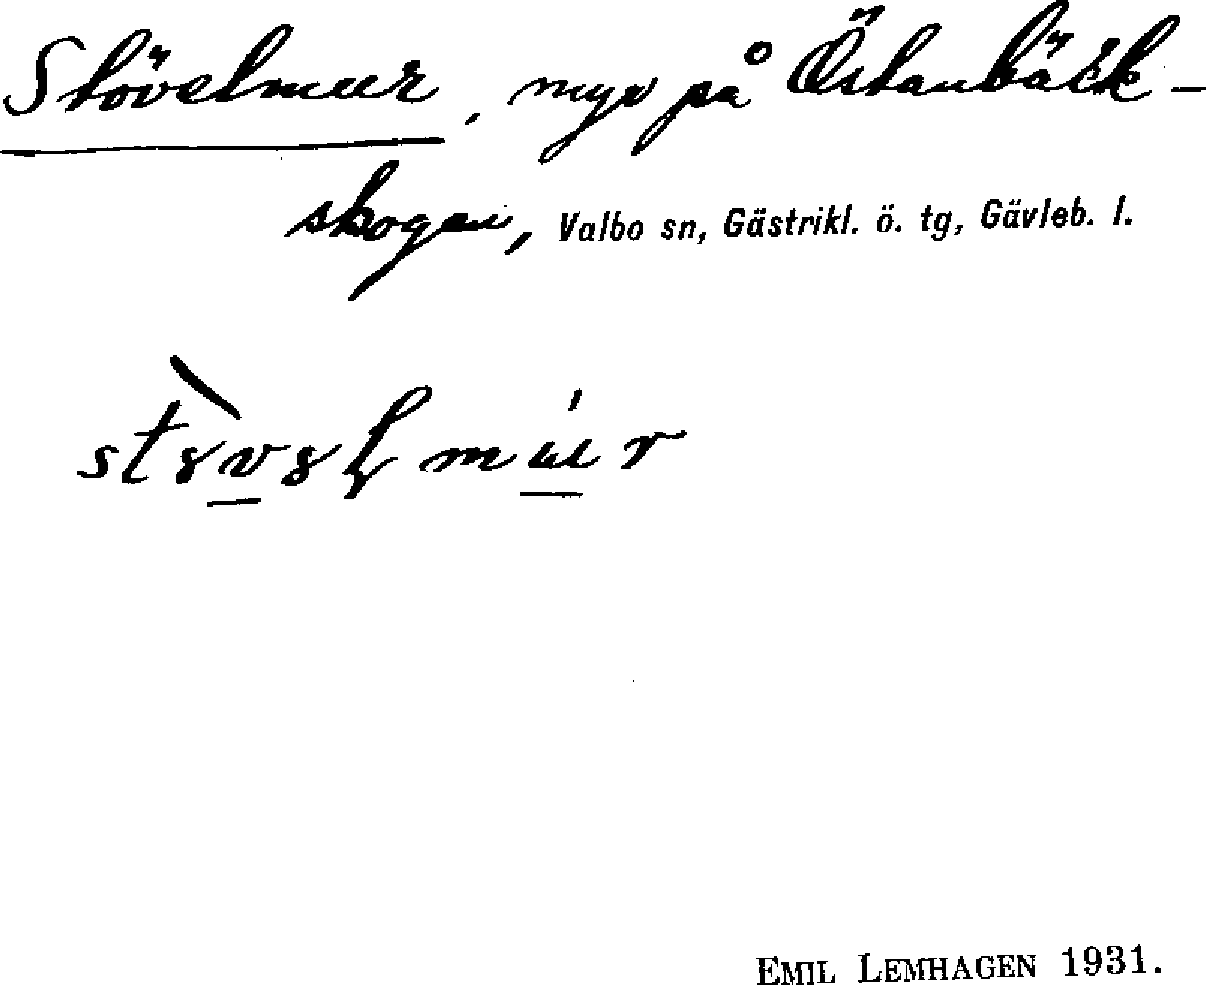 Stövelmur, myr på Östanbäck-
skogen, Valbo sn, Gästrikl. ö. tg, Gävleb. l.
EMIL LEMHAGEN 1931.